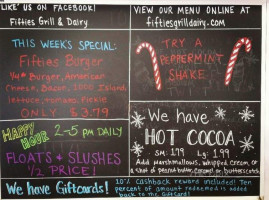 LIKE US ON FACEBOOK!
Fifties Grill & Dairy
THIS WEEK'S SPECIAL:
Fifties Burger
1/4# Burger, American
Cheese, Bacon, 1000 Island
lettuce, tomato, Pickle
ONLY $3.79
HAPPY HOUR
2-5 pm DAILY
FLOATS & SLUSHES
1/2 PRICE!
We have Giftcards!
VIEW OUR MENU ONLINE AT
fiftiesgrilldairy.com
TRY A
PEPPERMINT
SHAKE
We have
HOT COCOA
SM: 1.79 Lg: 1.99
Add marshmallows, whipped cream, or
a shot of peanut butter, caramel or butterscotch
10% cashback reward included! Ten
percent of amount redeemed is added
back to the Giftcard!